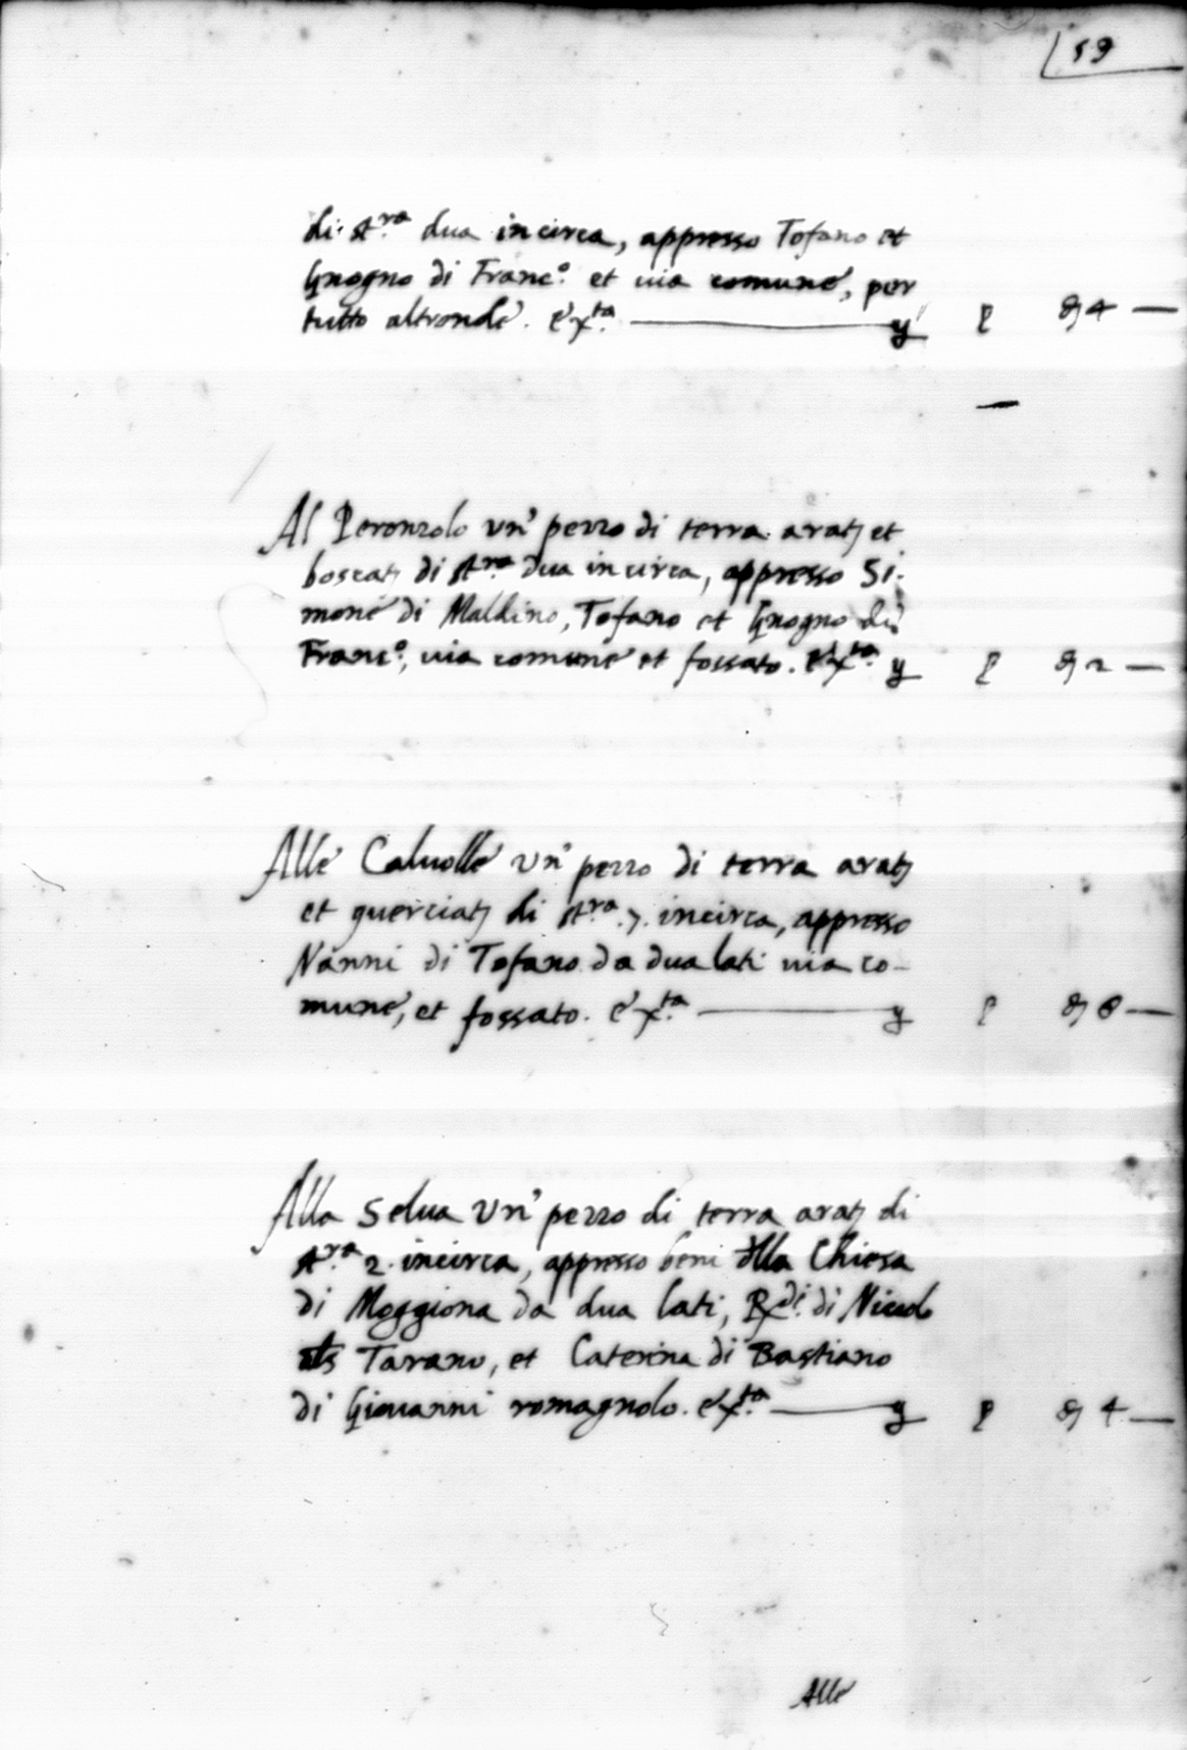 59
di st.ra dua incirca, appresso Tofano et
Gnogno di Franc.o et uia comune, per
tutto altronde. e x.ta — y 4 —
Al Peronzolo un' pezzo di terra arat; et
boscat; di st.ra dua incirca, appresso Si-
mone di Maldino, Tofano et Gnogno di
Franc.o, uia comune et fossato. e x.ta y 2 —
Alle Caluolle un' pezzo di terra arat;
et querciat; di st.ra 7. incirca, appresso
Nanni di Tofano da dua lati uia co-
mune, et fossato. e x.ta — y 6 —
Alla Selua un' pezzo di terra arat; di
st.ra 2. incirca, appresso beni della Chiesa
di Moggiona da dua lati, Rx.di di Niccolo
als Tarano, et Caterina di Bastiano
di Giouanni romagnolo. e x.ta — y 4 —
Alle